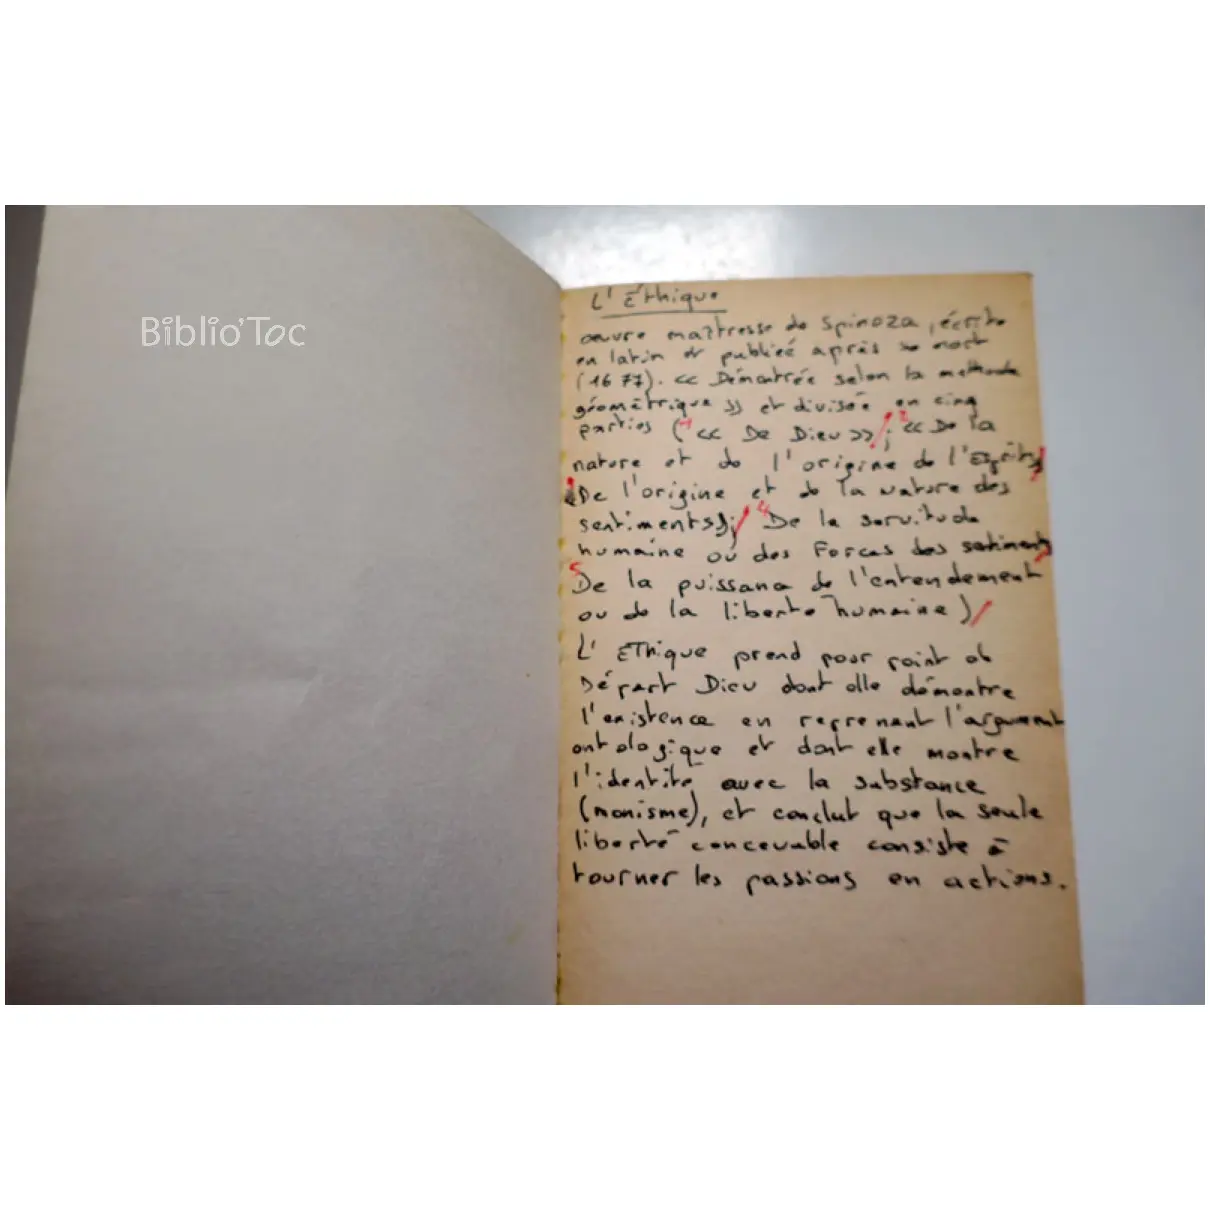 Biblio'Toc
L'Éthique
oeuvre maîtresse de Spinoza, écrite
en latin et publieé après sa mort
(1677). << Démontrée selon la méthode
géométrique >> et divisée en cinq
parties (1 << De Dieu >>; 2 << De la
nature et de l'origine de l'Esprit>>
De l'origine et de la nature des
sentiments>>; 4 De la servitude
humaine ou des Forces des sentiments
5 De la puissance de l'entendement
ou de la liberté humaine)
L'Ethique prend pour point de
Départ Dieu dont elle démontre
l'existence en reprenant l'argument
ontologique et dont elle montre
l'identité avec la substance
(monisme), et conclut que la seule
liberté concevable consiste à
tourner les passions en actions.